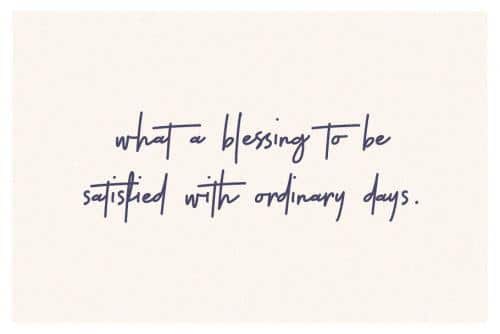 what a blessing to be
satisfied with ordinary days.